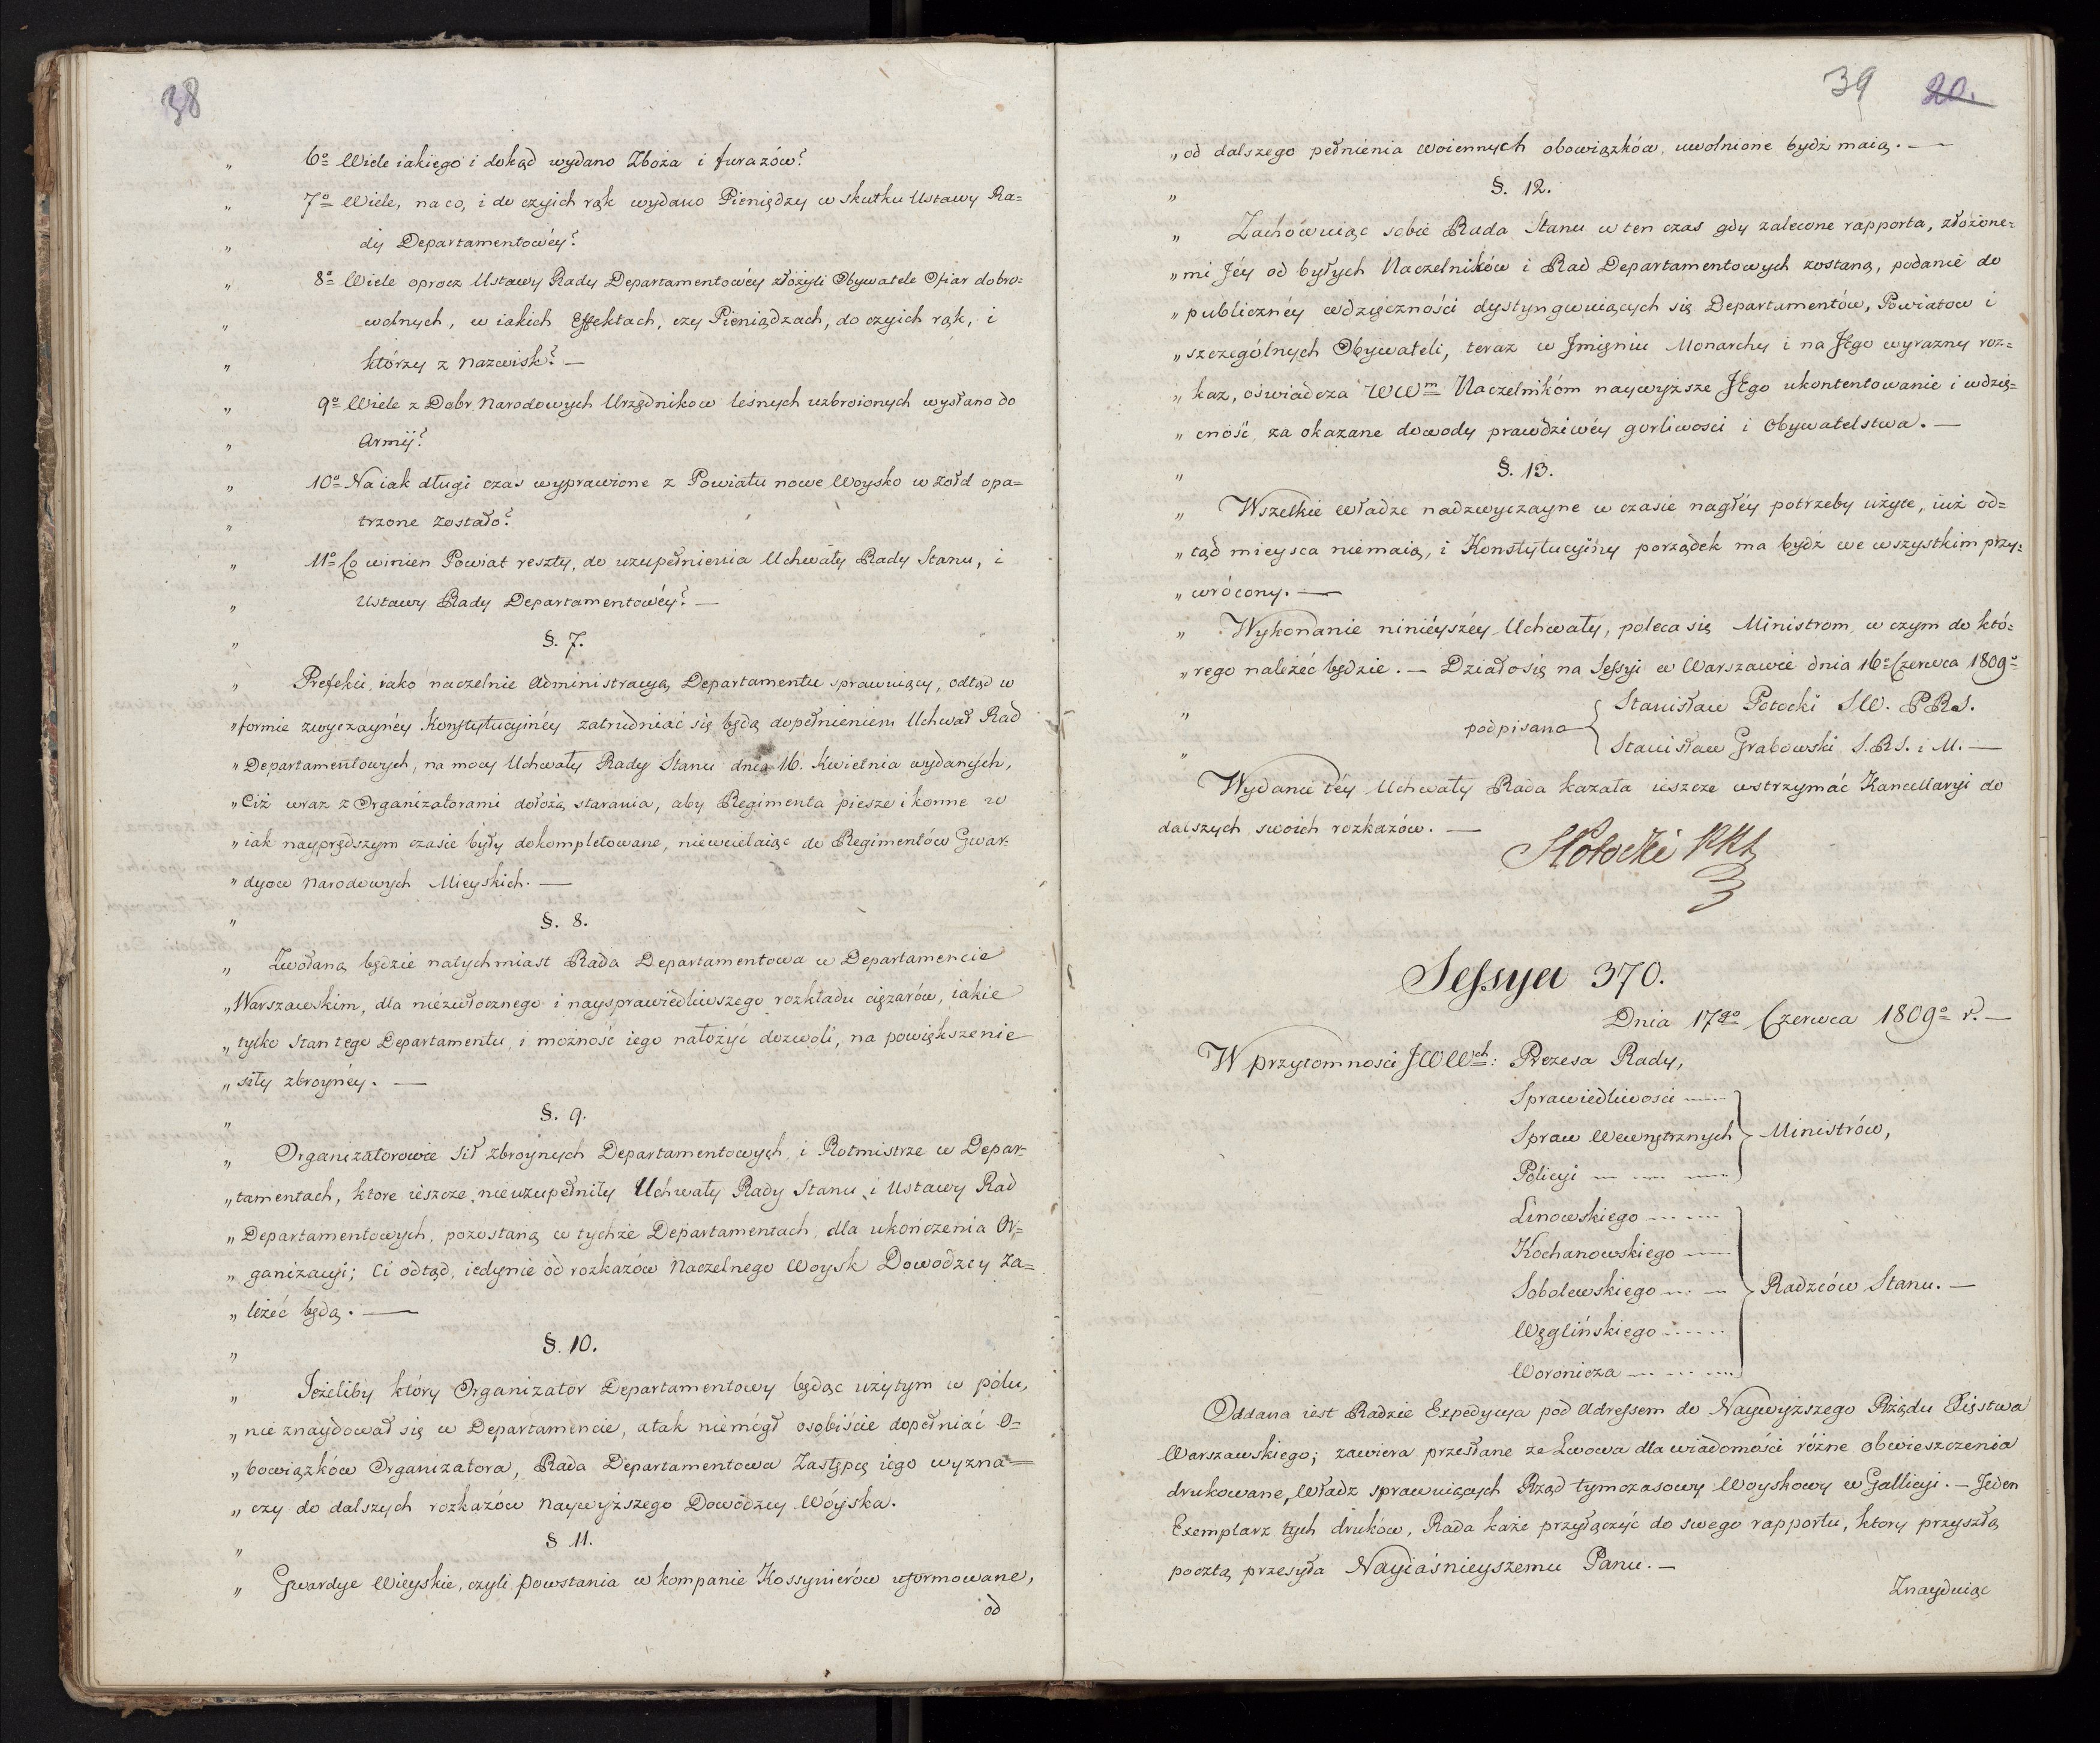 38
„ 6o Wiele iakiego i dokąd wydano Zboża i furazów?
„ 7o Wiele, na co, i do czyich rąk wydano Pieniędzy w skutku Ustawy Ra=
„ dy Departamentowéy?
„ 8o Wiele oprocz Ustawy Rady Departamentowéy złożyli Obywatele Ofiar dobro=
„ wolnych, w iakich Effektach, czy Pieniądzach, do czyich rąk, i
„ którzy z Nazwisk? —
„ 9o Wiele z Dobr Narodowych Urzędnikow leśnych uzbroionych wysłano do
„ Armij?
„ 10o Na iak długi czas wyprawione z Powiatu nowe Woysko w żołd opa=
„ trzone zostało?
„ 11o Co winien Powiat reszty, do uzupełnienia Uchwały Rady Stanu, i
„ Ustawy Rady Departamentowéy? —
„ §. 7.
„ Prefekci, iako naczelnie Administracyą Departamentu sprawuiący, odtąd w
„ formie zwyczaynéy Konstytucyinéy zatrudniać się będą dopełnieniem Uchwał Rad
„ Departamentowych, na mocy Uchwały Rady Stanu dnia 16. Kwietnia wydanych,
„ Ciż wraz z Organizatorami dołożą starania, aby Regimenta piesze i konne w
„ iak nayprędszym czasie były dokompletowane, niewcielaiąc do Regimentów Gwar-
„ dyow Narodowych Mieyskich. —
„ §. 8.
„ Zwołaną będzie natychmiast Rada Departamentowa w Departamencie
„ Warszawskim, dla niezwłocznego i naysprawiedliwszego rozkładu ciężarów, iakie
„ tylko Stan tego Departamentu, i możność iego nałożyć dozwoli, na powiększenie
„ siły zbroynéy. —
„ §. 9.
„ Organizatorowie Sił zbroynych Departamentowych, i Rotmistrze w Depar-
„ tamentach, ktore ieszcze nieuzupełniły Uchwały Rady Stanu, i Ustawy Rad
„ Departamentowych, pozostaną w tychże Departamentach, dla ukończenia Or=
„ ganizacyi; Ci odtąd, iedynie od rozkazów Naczelnego Woysk Dowodzcy Za=
„ leżeć będą. —
„ §. 10.
„ Jeżeliby który Organizator Departamentowy będąc użytym w polu,
„ nie znaydował się w Departamencie, a tak niemógł osobiście dopełniać O=
„ bowiązków Organizatora, Rada Departamentowa Zastępcę iego wyzna=
„ czy do dalszych rozkazów Naywyższego Dowódzcy Wóyska.
„ § 11.
„ Gwardye Wieyskie, czyli Powstania w kompanie Kossynierów uformowane,
od
39 20.
„ od dalszego pełnienia woiennych obowiązków, uwolnione bydź maią. —
„ §. 12.
„ Zachówuiąc sobie Rada Stanu w ten czas gdy zalecone rapporta, złożone=
„ mi Jéy od byłych Naczelników i Rad Departamentowych zostaną, podanie do
„ publicznéy wdzięczności dystyngwuiących się Departamentów, Powiatow i
„ szczególnych Obywateli, teraz w Jmięniu Monarchy i na JEgo wyrazny roz=
„ kaz, oświadcza WWm Naczelnikóm naywyższe JEgo ukontentowanie i wdzię=
„ cność, za okazane dowody prawdziwéy gorliwosci i Obywatelstwa. —
„ §. 13.
„ Wszelkie władze nadzwyczayne w czasie nagłéy potrzeby użyte, iuż od=
„ tąd mieysca niemaią, i Konstytucyiny porządek ma bydź we wszystkim przy=
„ wrócony. —
„ Wykonanie ninieyszéy Uchwały, poleca się Ministrom, w czym do któ=
„ rego należeć będzie. — Działo się na Sessyi w Warszawie dnia 16o Czerwca 1809o
„ podpisano { Stanisław Potocki S.W. P.R.S.
„ Stanisław Grabowski S.R.S. i M. —
Wydanie téy Uchwały Rada kazała ieszcze wstrzymać Kancellaryi do
dalszych swoich rozkazów. —
SPotocki
Sessya 370.
Dnia 17go Czerwca 1809o r. —
W przytomnosci JWWch: Prezesa Rady,
Sprawiedliwosci
Spraw Wewnętrznych } Ministrów,
Policyi
Linowskiego
Kochanowskiego
Sobolewskiego } Radzców Stanu. —
Węglińskiego
Woronicza
Oddana iest Radzie Expedycya pod Adressem do Naywyższego Rządu Xięstwa
Warszawskiego; zawiera przesłane ze Lwowa dla wiadomości różne obwieszczenia
drukowane, Władz sprawuiących Rząd tymczasowy Woyskowy w Gallicyi. — Jeden
Exemplarz tych druków, Rada każe przyłączyć do swego rapportu, ktory przyszłą
pocztą przesyła Nayiaśnieyszemu Panu. —
Znayduiąc